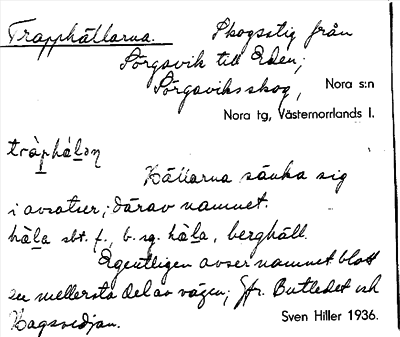 Trapphällarna. Skogsstig från
Sörgovik till Eden;
Sörgoviksskog, Nora s:n
Nora tg, Västernorrlands l.
tràphála̱n
Hällarna sänka sig
i avsatser; därav namnet.
hàḻa sbt. f., b. sg. hàḻa, berghäll.
Egentligen avser namnet blott
en mellersta del av vägen; Jfr. Butledet och
Hagsvedjan. Sven Hiller 1936.